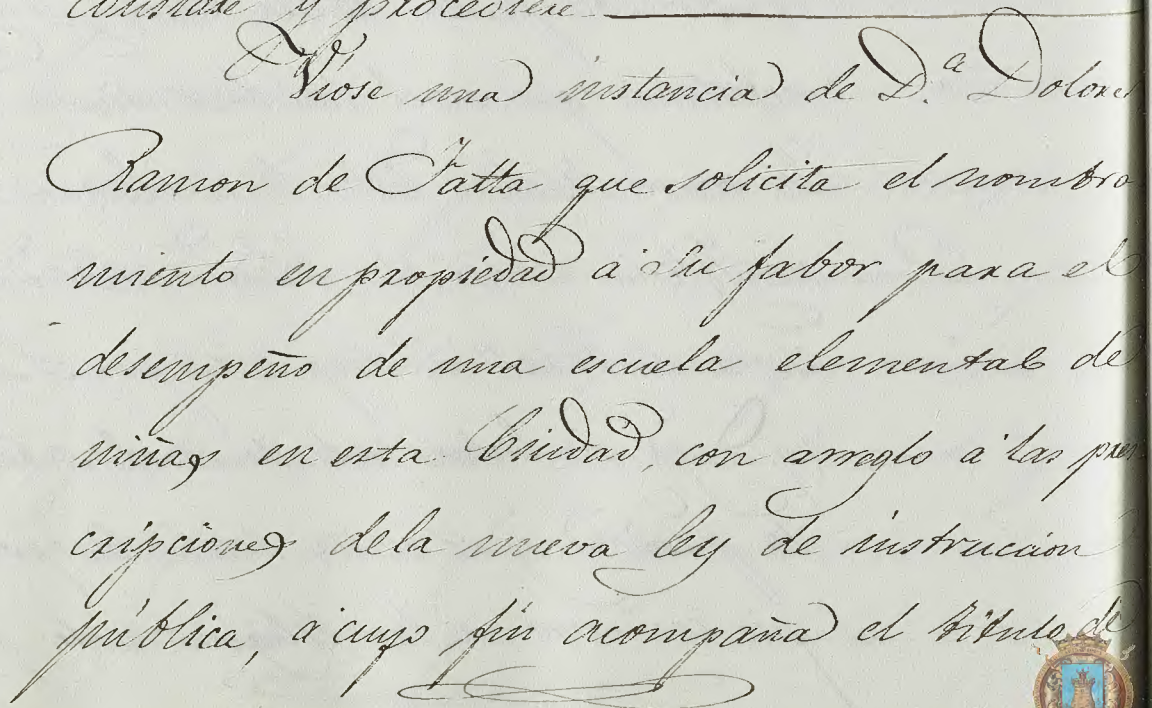 y procediere
Viose una instancia de D.ª Dolores
Ramon de Fatta que solicita el nombra
miento en propiedad a su fabor para el
desempeño de una escuela elemental de
niñas en esta Ciudad, con arreglo á las pres
cripciones dela nueva ley de instruccion
pública, a cuyo fin acompaña el título de